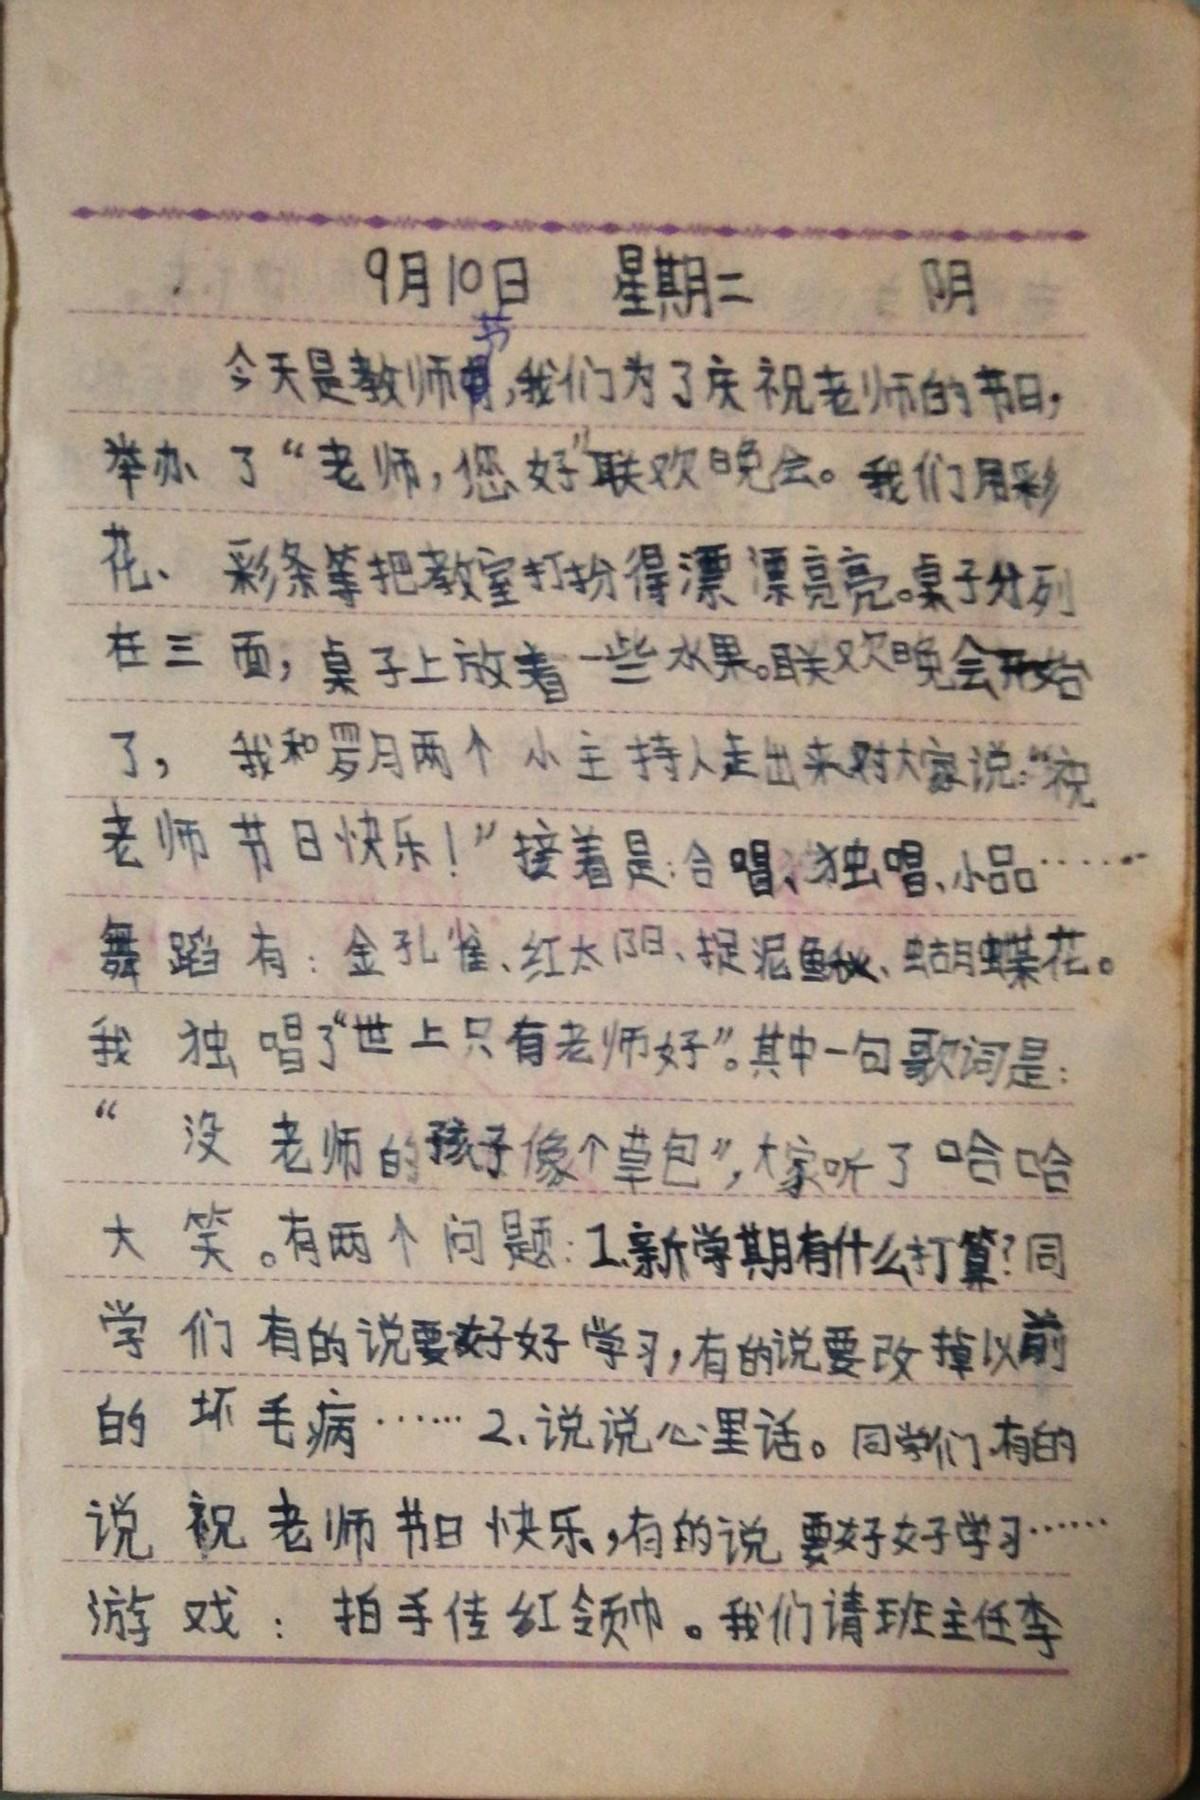 9月10日 星期二 阴
今天是教师节,我们为了庆祝老师的节日,
举办了“老师,您好”联欢晚会。我们用彩
花、彩条等把教室打扮得漂漂亮亮。桌子分列
在三面,桌子上放着一些水果。联欢晚会开始
了,我和罗月两个小主持人走出来对大家说:“祝
老师节日快乐!”接着是:合唱、独唱、小品……
舞蹈有:金孔雀、红太阳、捉泥鳅、蝴蝶花。
我独唱了“世上只有老师好”。其中一句歌词是:
“没老师的孩子像个草包”,大家听了哈哈
大笑。有两个问题:1.新学期有什么打算?同
学们有的说要好好学习,有的说要改掉以前
的坏毛病……2、说说心里话。同学们有的
说祝老师节日快乐,有的说要好好学习……
游戏:拍手传红领巾。我们请班主任李